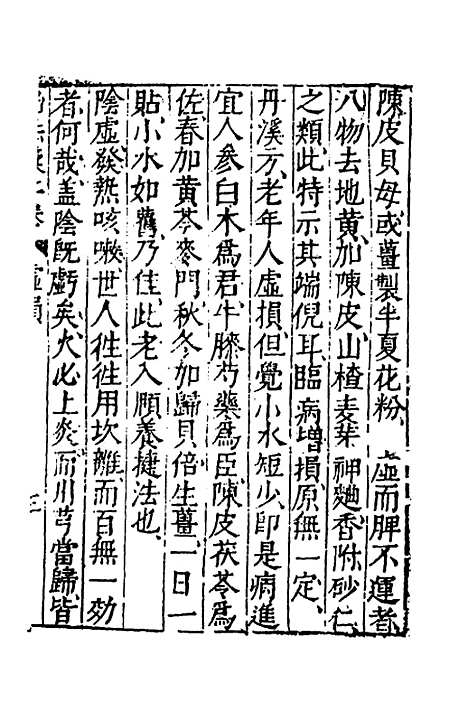 陳皮貝母或薑製半夏花粉、虛而脾不運者、
八物去地黃加陳皮山楂麦芽神麯香附砂仁
之類、此特示其端倪耳、臨病增損、原無一定、
丹溪方、老年人虛損、但覺小水短少、即是病進
宜人參白木為君、牛膝芍藥為臣、陳皮茯苓為
佐、春加黃芩麥門、秋冬加歸貝倍生薑、一日一
貼、小水如舊乃佳、此老入頤養捷法也、
陰虛發熱咳嗽、世人徃徃用坎離、而百無一効
者、何哉、盖陰既虧矣、火必上炎、而川芎當歸、皆
卷 虛損